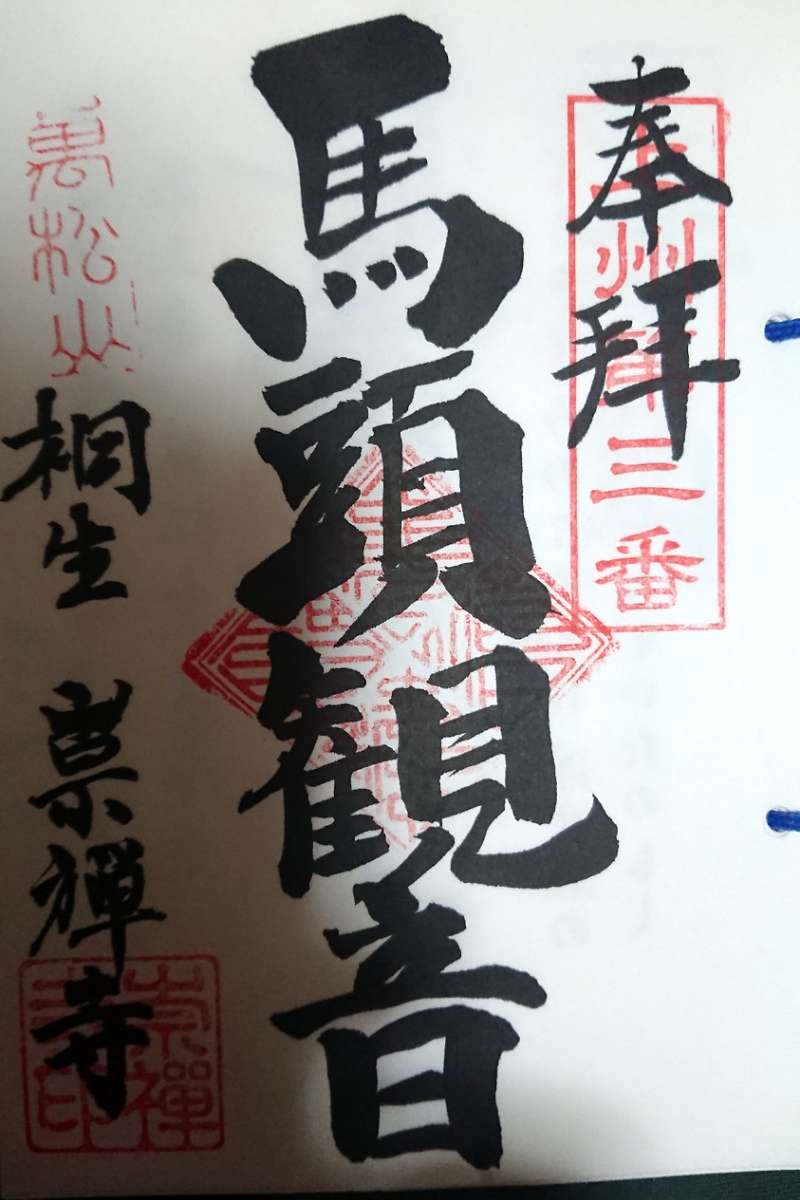 奉拝
上州第三番
馬頭観音
萬松山
桐生 崇禅寺
崇禪寺印